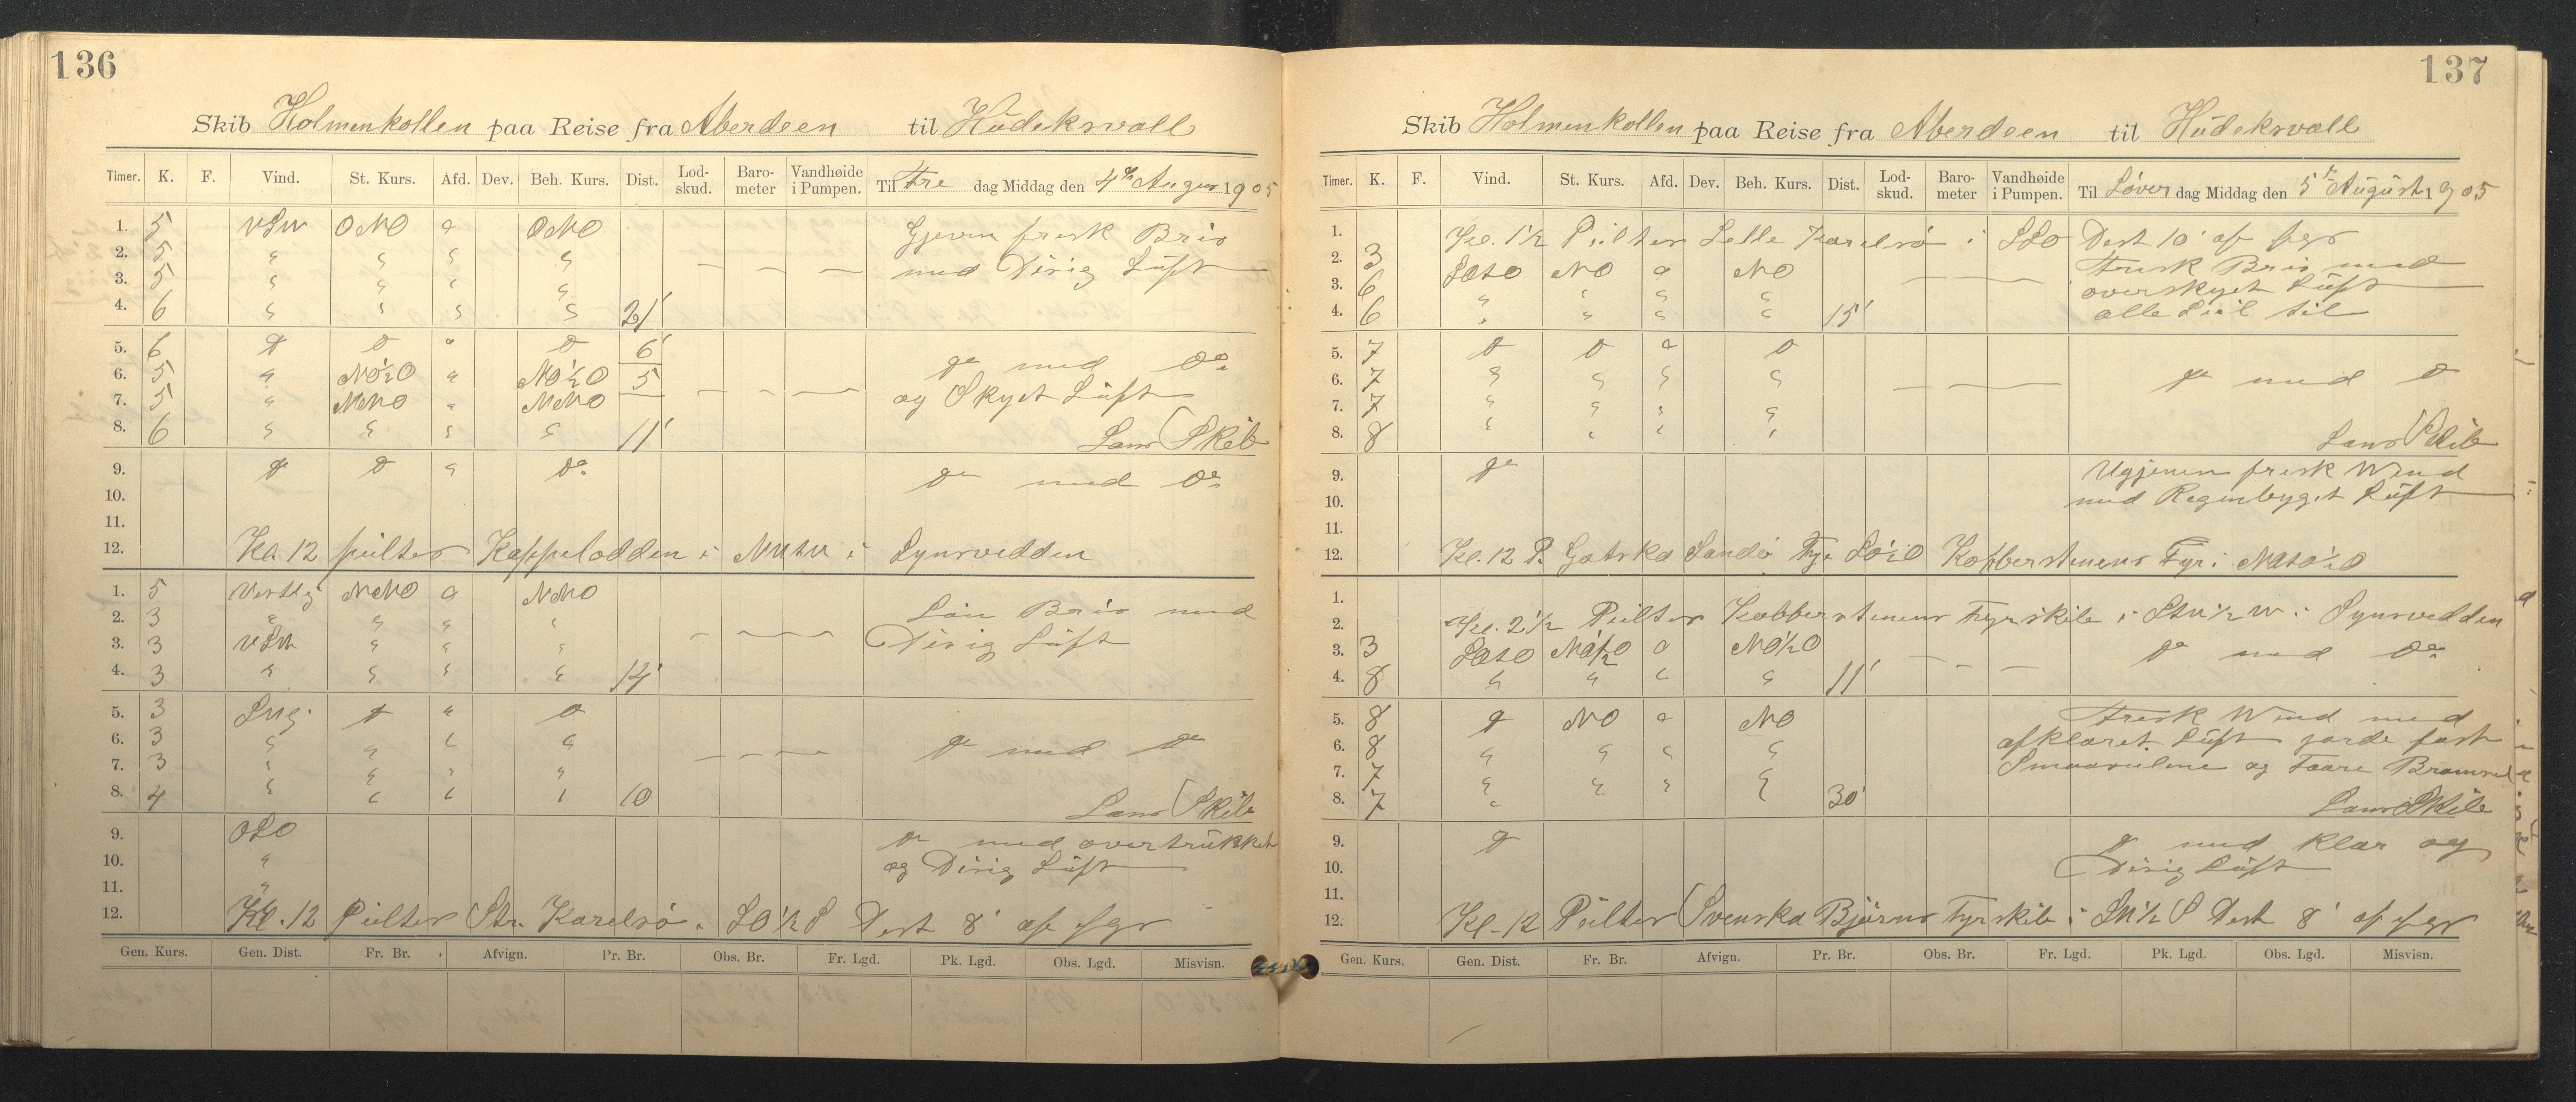 136
Skib Holmenkollen paa Reise fra Aberdeen til Hudeksvall
Timer. K. F. Vind. St. Kurs. Afd. Dev. Beh. Kurs. Dist. Lod-skud. Baro-meter Vandhøide i Pumpen. Til Fre dag Middag den 4de August 1905
1. 5 VSW ONO a ONO Gjevn frisk Bris
2. 5 " " " "
3. 5 " " " " med Disig Luft
4. 6 " " " " 21'
5. 6 do do " do 6'
6. 5 " NO½O " NO½O 5 do med do
7. 5 " NNO " NNO og Skyet Luft
8. 6 " " " " 11' Lans Skib
9. do do " do do med do
10.
11.
12. Kl 12 peilter Kappelodden i i Synsvidden
1. 5 Vestlig NNO a NNO Lau Bris med
2. 3 " " " "
3. 3 VSW " " " Disig Luft
4. 3 " " " " 14'
5. 3 do " do
6. 3 " " " " do med do
7. 3 " " " "
8. 4 " " " " 10 Lans Skib
9. OSO do med overtrukket
10. " og Disig Luft
11. "
12. Kl. 12 Peilter Str. Karelsø i SO½S Dist 8' af fgr
Gen. Kurs. Gen. Dist. Fr. Br. Afvign. Pr. Br. Obs. Br. Fr. Lgd. Pk. Lgd. Obs. Lgd. Misvisn.
137
Skib Holmenkollen paa Reise fra Aberdeen til Hudeksvall
Timer. K. F. Vind. St. Kurs. Afd. Dev. Beh. Kurs. Dist. Lod-skud. Baro-meter Vandhøide i Pumpen. Til Løver dag Middag den 5te August 1905
1. Kl. 1½ Peilter Lelle Karelsø i SSO Dist 10' af fgr
2. 3 SOTO NO a NO Frisk Bris med
3. 6 " " " " overskyet Luft
4. 6 " " " " 15' alle Seil til
5. 7 do do a do
6. 7 " " " " do med do
7. 7 " " " "
8. 8 " " " " Lans Skib
9. do Ugjevn frisk Wind
10. med Regenbyget Luft
11.
12. Kl. 12 P. Gotska Sandø Fyr SO½O Kopperstenens Fyr i NOTO½O
1.
2. Kl. 2½ Peilter Kobberstenens Fyrskib i STW½W i Synsvidden
3. 3 SOTO NO½O a NO½O do med do
4. 8 " " " " 11'
5. 8 do NO a NO Frisk Wind med
6. 8 " " " " afklaret Luft gorde fast
7. 7 " " " " og Faare
8. 7 " " " " 30' Lans Skib
9. do do med klar og
10. Disig Luft
11.
12. Kl. 12 Peilter Svenska Bjørns Fyrskib i SW½S Dist 8' af fgr
Gen. Kurs. Gen. Dist. Fr. Br. Afvign. Pr. Br. Obs. Br. Fr. Lgd. Pk. Lgd. Obs. Lgd. Misvisn.